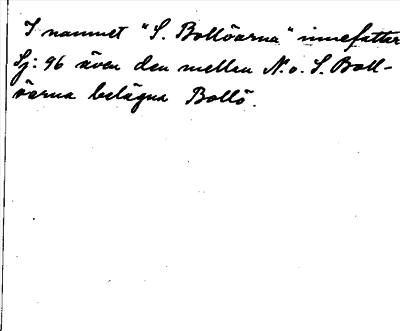 I namnet "S. Bollöarna" innefattar
Sj: 96 även den mellan N. o. S. Boll-
öarna belägna Bollö.